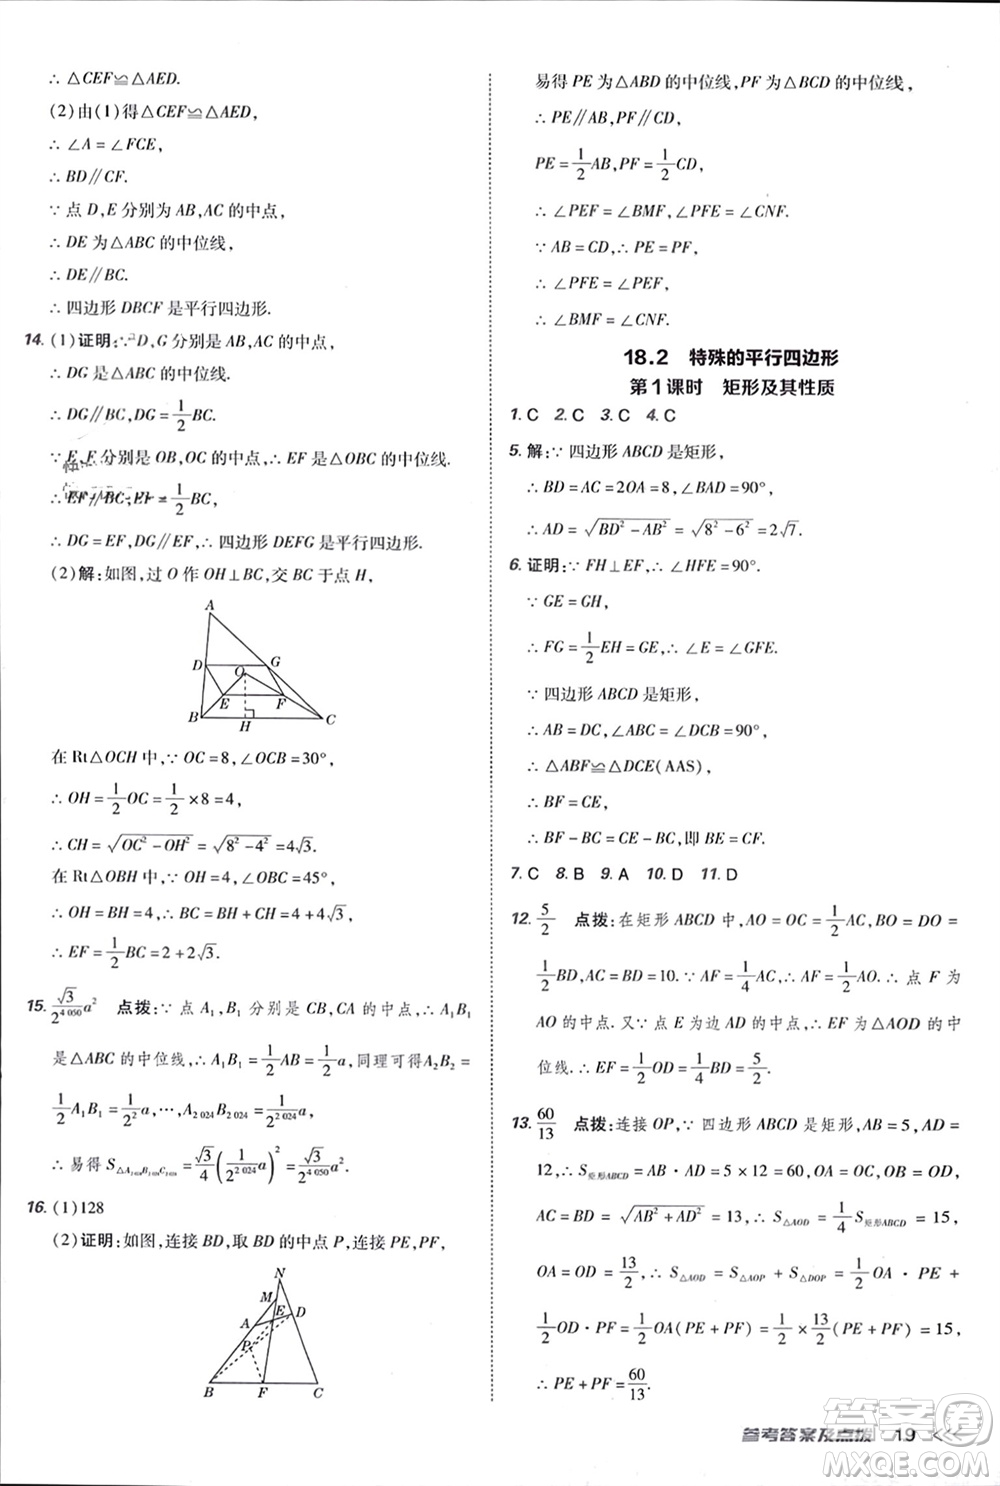 ∴ △CEF≌△AED.
(2)由(1)得△CEF≌△AED,
∴ ∠A=∠FCE,
∴ BD∥CF.
∵ 点 D,E 分别为 AB,AC 的中点,
∴ DE 为△ABC 的中位线,
∴ DE∥BC.
∴ 四边形 DBCF 是平行四边形.
14. (1)证明:∵D,G 分别是 AB,AC 的中点,
∴ DG 是△ABC 的中位线.
∴ DG∥BC,DG=1/2 BC.
∵ E,F 分别是 OB,OC 的中点,∴ EF 是△OBC 的中位线.
∴ EF∥BC,EF=1/2 BC,
∴ DG=EF,DG∥EF,∴ 四边形 DEFG 是平行四边形.
(2)解:如图,过 O 作 OH⊥BC,交 BC 于点 H,
A
D
G
O
E
F
B
H
C
在 Rt△OCH 中,∵ OC=8,∠OCB=30°,
∴ OH=1/2 OC=1/2×8=4,
∴ CH=√(OC²-OH²)=√(8²-4²)=4√3.
在 Rt△OBH 中,∵ ∠OBC=45°,
∴ OH=BH=4,∴ BC=4+4√3.
∴ EF=1/2 BC=2+2√3.
15. √3/2^(4 050) a² 点拨:∵ 点 A₁,B₁ 分别是 CB,CA 的中点,∴ A₁B₁
是△ABC 的中位线,∴ A₁B₁=1/2 AB=1/2 a,同理可得A₂B₂=
1/2 A₁B₁=1/2² a,⋯,A₂ ₀₂₄B₂ ₀₂₄=1/2^(2 024) a,
∴ 易得 S△A B C=√3/4(1/2^(2 024) a)²=√3/2^(4 050) a².
16. (1)128
(2)证明:如图,连接 BD,取 BD 的中点 P,连接 PE,PF,
N
M
E
D
A
P
B
F
C
易得 PE 为△ABD 的中位线,PF 为△BCD 的中位线.
∴ PE∥AB,PF∥CD,
PE=1/2 AB,PF=1/2 CD,
∴ ∠PEF=∠BMF,∠PFE=∠CNF.
∵ AB=CD,∴ PE=PF,
∴ ∠PFE=∠PEF,
∴ ∠BMF=∠CNF.
18.2 特殊的平行四边形
第1课时 矩形及其性质
1. C 2. C 3. C 4. C
5. 解:∵ 四边形 ABCD 是矩形,
∴ BD=AC=2OA=8,∠BAD=90°,
∴ AD=√(BD²-AB²)=√(8²-6²)=2√7.
6. 证明:∵ FH⊥EF,∴ ∠HFE=90°.
∵ GE=GH,
∴ FG=1/2 EH=GE,∴ ∠E=∠GFE.
∵ 四边形 ABCD 是矩形,
∴ AB=DC,∠ABC=∠DCB=90°,
∴ △ABF≌△DCE(AAS),
∴ BF=CE,
∴ BF-BC=CE-BC,即 BE=CF.
7. C 8. B 9. A 10. D 11. D
12. 5/2 点拨:在矩形 ABCD 中,AO=OC=1/2 AC,BO=DO=
1/2 BD,AC=BD=10.∵ AF=1/4 AC,∴ AF=1/2 AO.∴ 点 F 为
AO 的中点.又∵ 点 E 为边 AD 的中点,∴ EF 为△AOD 的中
位线.∴ EF=1/2 OD=1/4 BD=5/2.
13. 60/13 点拨:连接 OP,∵ 四边形 ABCD 是矩形,AB=5,AD=
12,∴ S矩形ABCD=AB·AD=5×12=60,OA=OC,OB=OD,
AC=BD=√(AB²+AD²)=13,∴ S△AOD=1/4 S矩形ABCD=15,
OA=OD=13/2,∴ S△AOD=S△AOP+S△DOP=1/2 OA·PE+
1/2 OD·PF=1/2 OA(PE+PF)=1/2×13/2(PE+PF)=15,
∴ PE+PF=60/13.
参考答案及点拨 19 <<<
答案圈
MXQE.COM